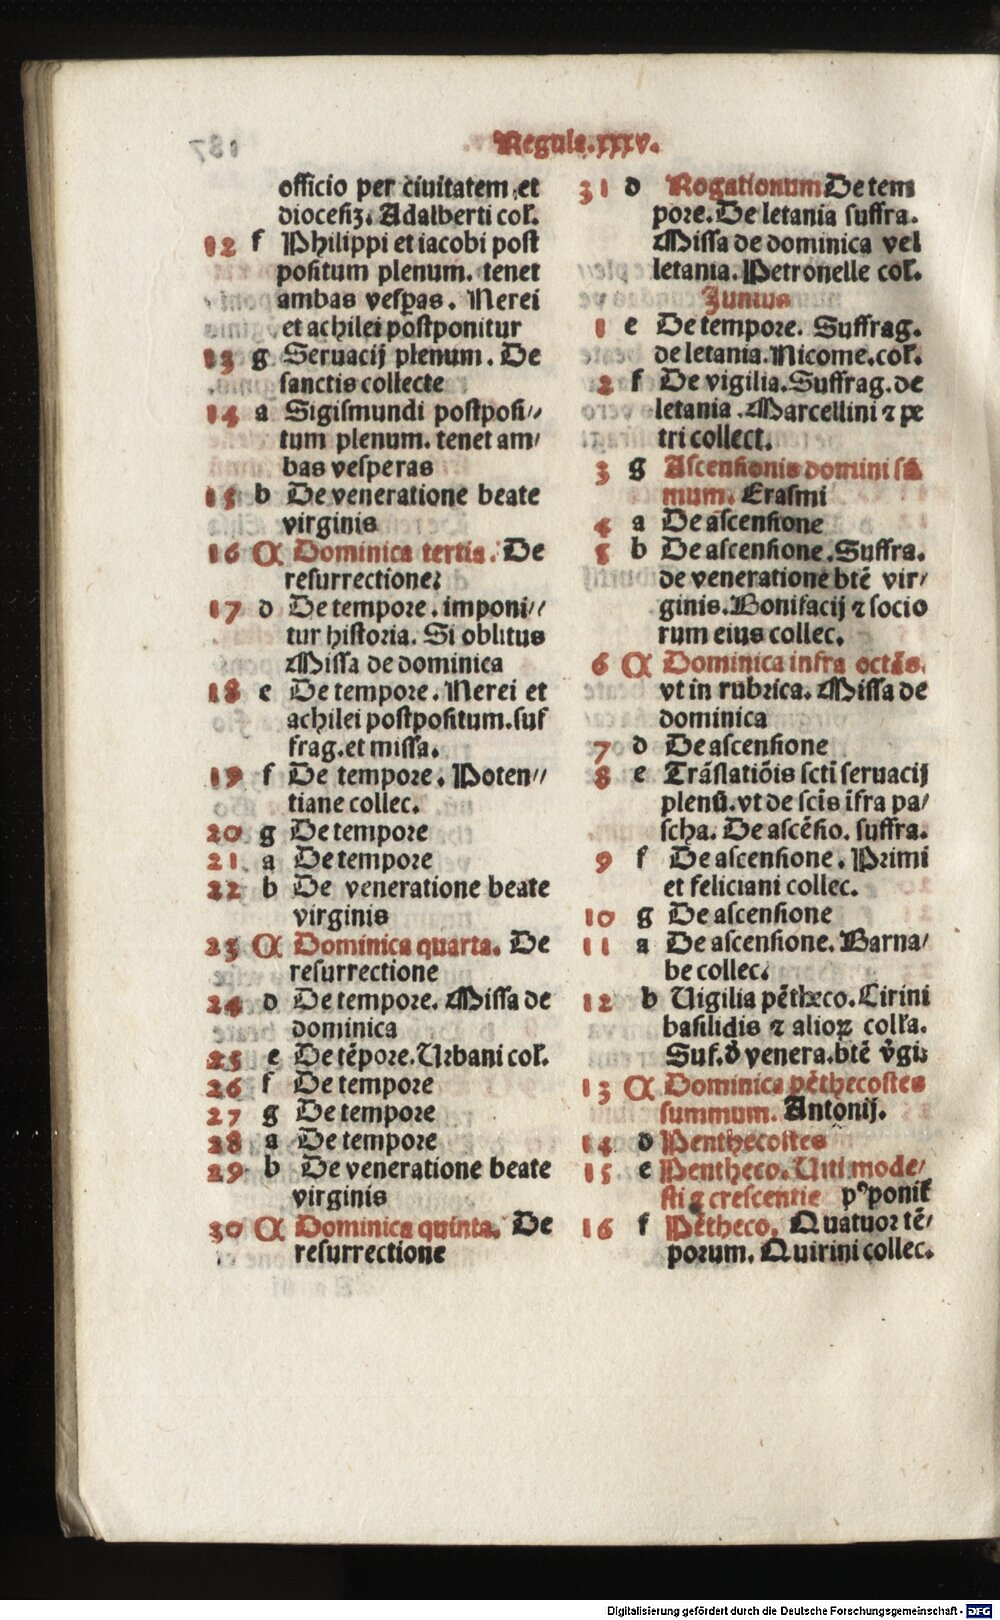 Regula.xxxv.
officio per ciuitatem et
diocesiʒ. Adalberti col̃.
12 f Philippi et iacobi post
positum plenum. tenet
ambas vesp̲as. Nerei
et achilei postponitur
13 g Seruacij plenum. De
sanctis collecte
14 a Sigismundi postposi//
tum plenum. tenet am/
bas vesperas
15 b De veneratione beate
virginis
16 A Dominica tertia. De
resurrectione:
17 d De tempore. imponi//
tur historia. Si oblitus
Missa de dominica
18 e De tempore. Nerei et
achilei postpositum. suf
frag. et missa.
19 f De tempore. Poten//
tiane collec.
20 g De tempore
21 a De tempore
22 b De veneratione beate
virginis
23 A Dominica quarta. De
resurrectione
24 d De tempore. Missa de
dominica
25 e De tẽpore. Urbani col̃.
26 f De tempore
27 g De tempore
28 a De tempore
29 b De veneratione beate
virginis
30 A Dominica quinta. De
resurrectione
31 d Rogationum De tem
pore. De letania suffra.
Missa de dominica vel
letania. Petronelle col̃.
Junius
1 e De tempore. Suffrag.
de letania. Nicome. col̃.
2 f De vigilia. Suffrag. de
letania. Marcellini ⁊ pe
tri collect.
3 g Ascensionis domini sũ
mum. Erasmi
4 a De ascensione
5 b De ascensione. Suffra.
de veneratione btẽ vir/
ginis. Bonifacij ⁊ socio
rum eius collec.
6 A Dominica infra octãs.
vt in rubrica. Missa de
dominica
7 d De ascensione
8 e Trãslatiõis scti seruacij
plenũ. vt de scis ĩfra pa/
scha. De ascẽsio. suffra.
9 f De ascensione. Primi
et feliciani collec.
10 g De ascensione
11 a De ascensione. Barna/
be collec.
12 b Uigilia pẽtheco. Cirini
basilidis ⁊ alioꝝ coll'a.
Suf. d̃ venera. btẽ v̾gi:
13 A Dominica pẽthecostes
summum. Antonij.
14 d Penthecostes
15 e Pentheco. Uiti mode/
sti ⁊ crescentie pꝰponit̃
16 f Pẽtheco. Quatuor tẽ/
porum. Quirini collec.
Digitalisierung gefördert durch die Deutsche Forschungsgemeinschaft - DFG